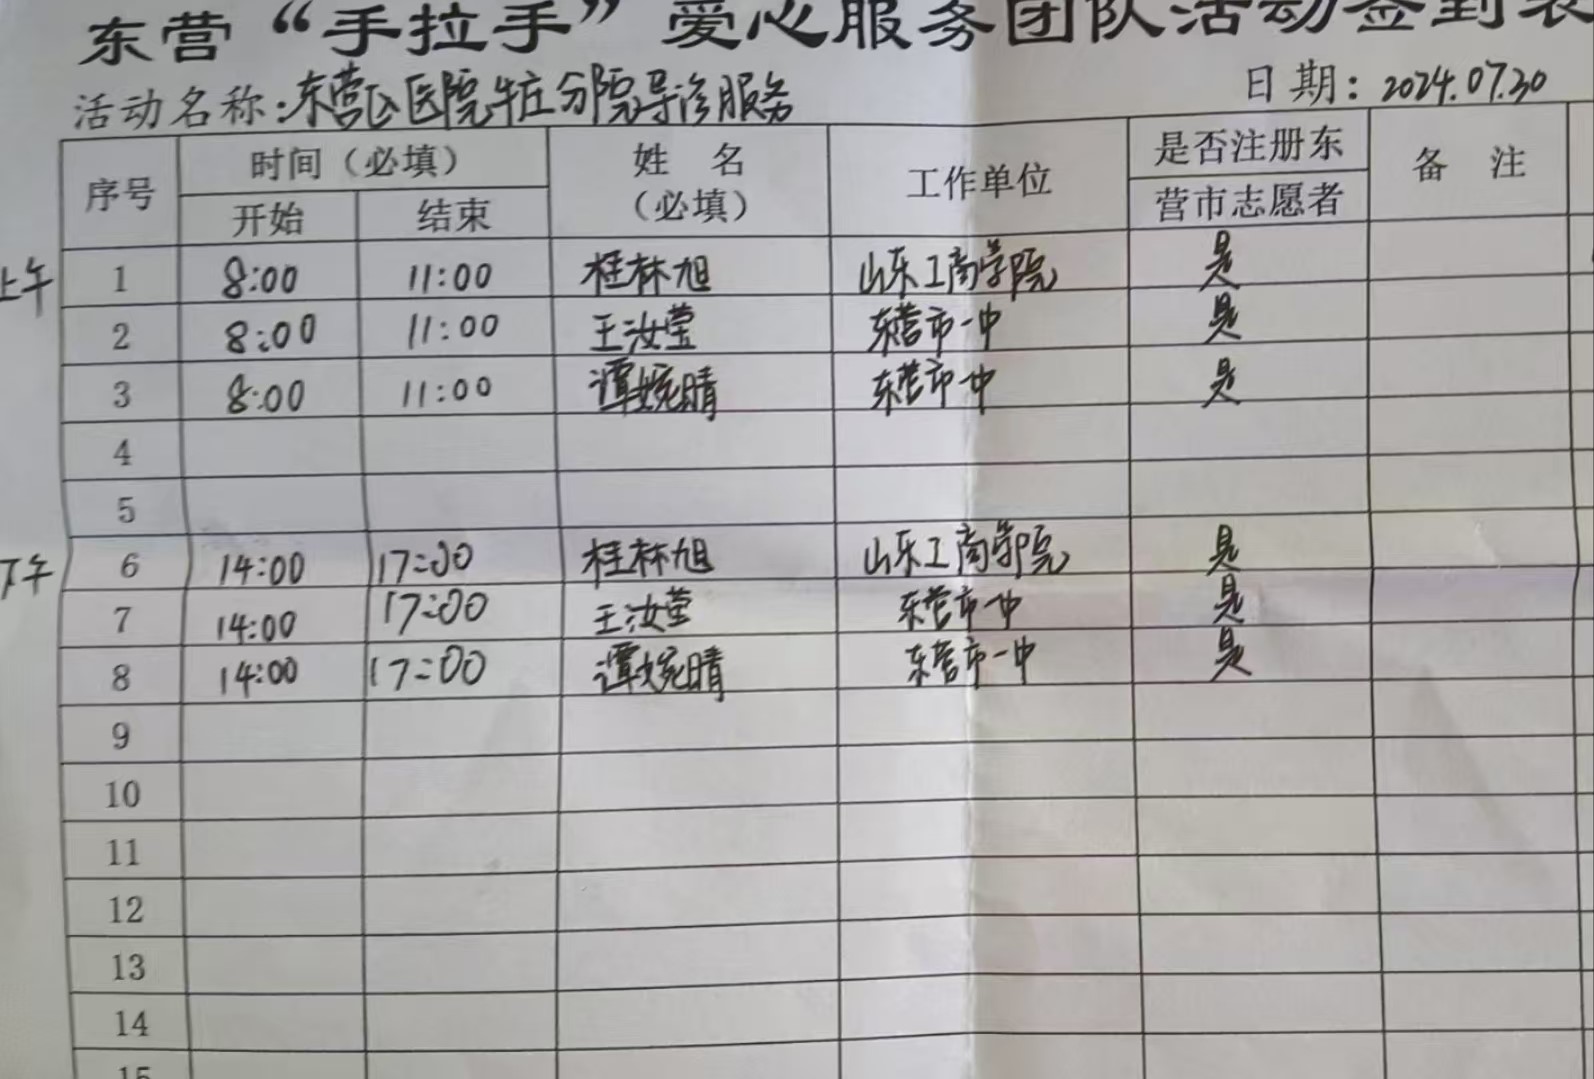 东营“手拉手”爱心服务团队活动签到表
活动名称:东营区医院牛庄分院导诊服务 日期：2024.07.30
序号 时间（必填） 姓 名（必填） 工作单位 是否注册东营市志愿者 备 注
开始 结束
上午 1 8:00 11:00 桂林旭 山东工商学院 是
2 8:00 11:00 王汝莹 东营市一中 是
3 8:00 11:00 谭婉晴 东营市一中 是
4
5
下午 6 14:00 17:00 桂林旭 山东工商学院 是
7 14:00 17:00 王汝莹 东营市一中 是
8 14:00 17:00 谭婉晴 东营市一中 是
9
10
11
12
13
14
15